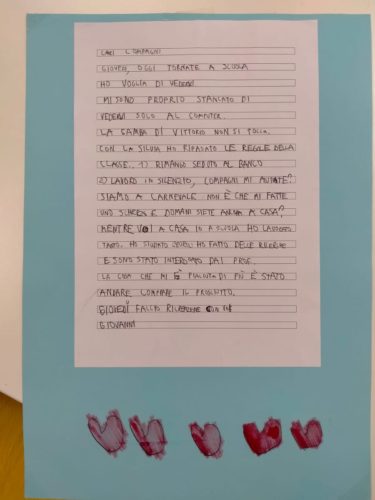 CARI COMPAGNI
GIOVEDÌ, OGGI TORNATE A SCUOLA
HO VOGLIA DI VEDERVI
MI SONO PROPRIO STANCATO DI
VEDERVI SOLO AL COMPUTER.
LA GAMBA DI VITTORIO NON SI TOCCA.
CON LA SILVIA HO RIPASSATO LE REGOLE DELLA
CLASSE. 1) RIMANGO SEDUTO AL BANCO
2) LAVORO IN SILENZIO, COMPAGNI MI AIUTATE?
SIAMO A CARNEVALE NON È CHE MI FATE
UNO SCHERZO E DOMANI SIETE ANCORA A CASA?
MENTRE VOI A CASA IO A SCUOLA HO LAVORATO
TANTO. HO STUDIATO HO FATTO DELLE RICERCHE
E SONO STATO INTERROGATO DAI PROF.
LA COSA CHE MI È PIACIUTA DI PIÙ È STATO
ANDARE COMPRARE IL PROSCIUTTO.
GIOVEDÌ FACCIO RICREAZIONE CON VOI
GIOVANNI